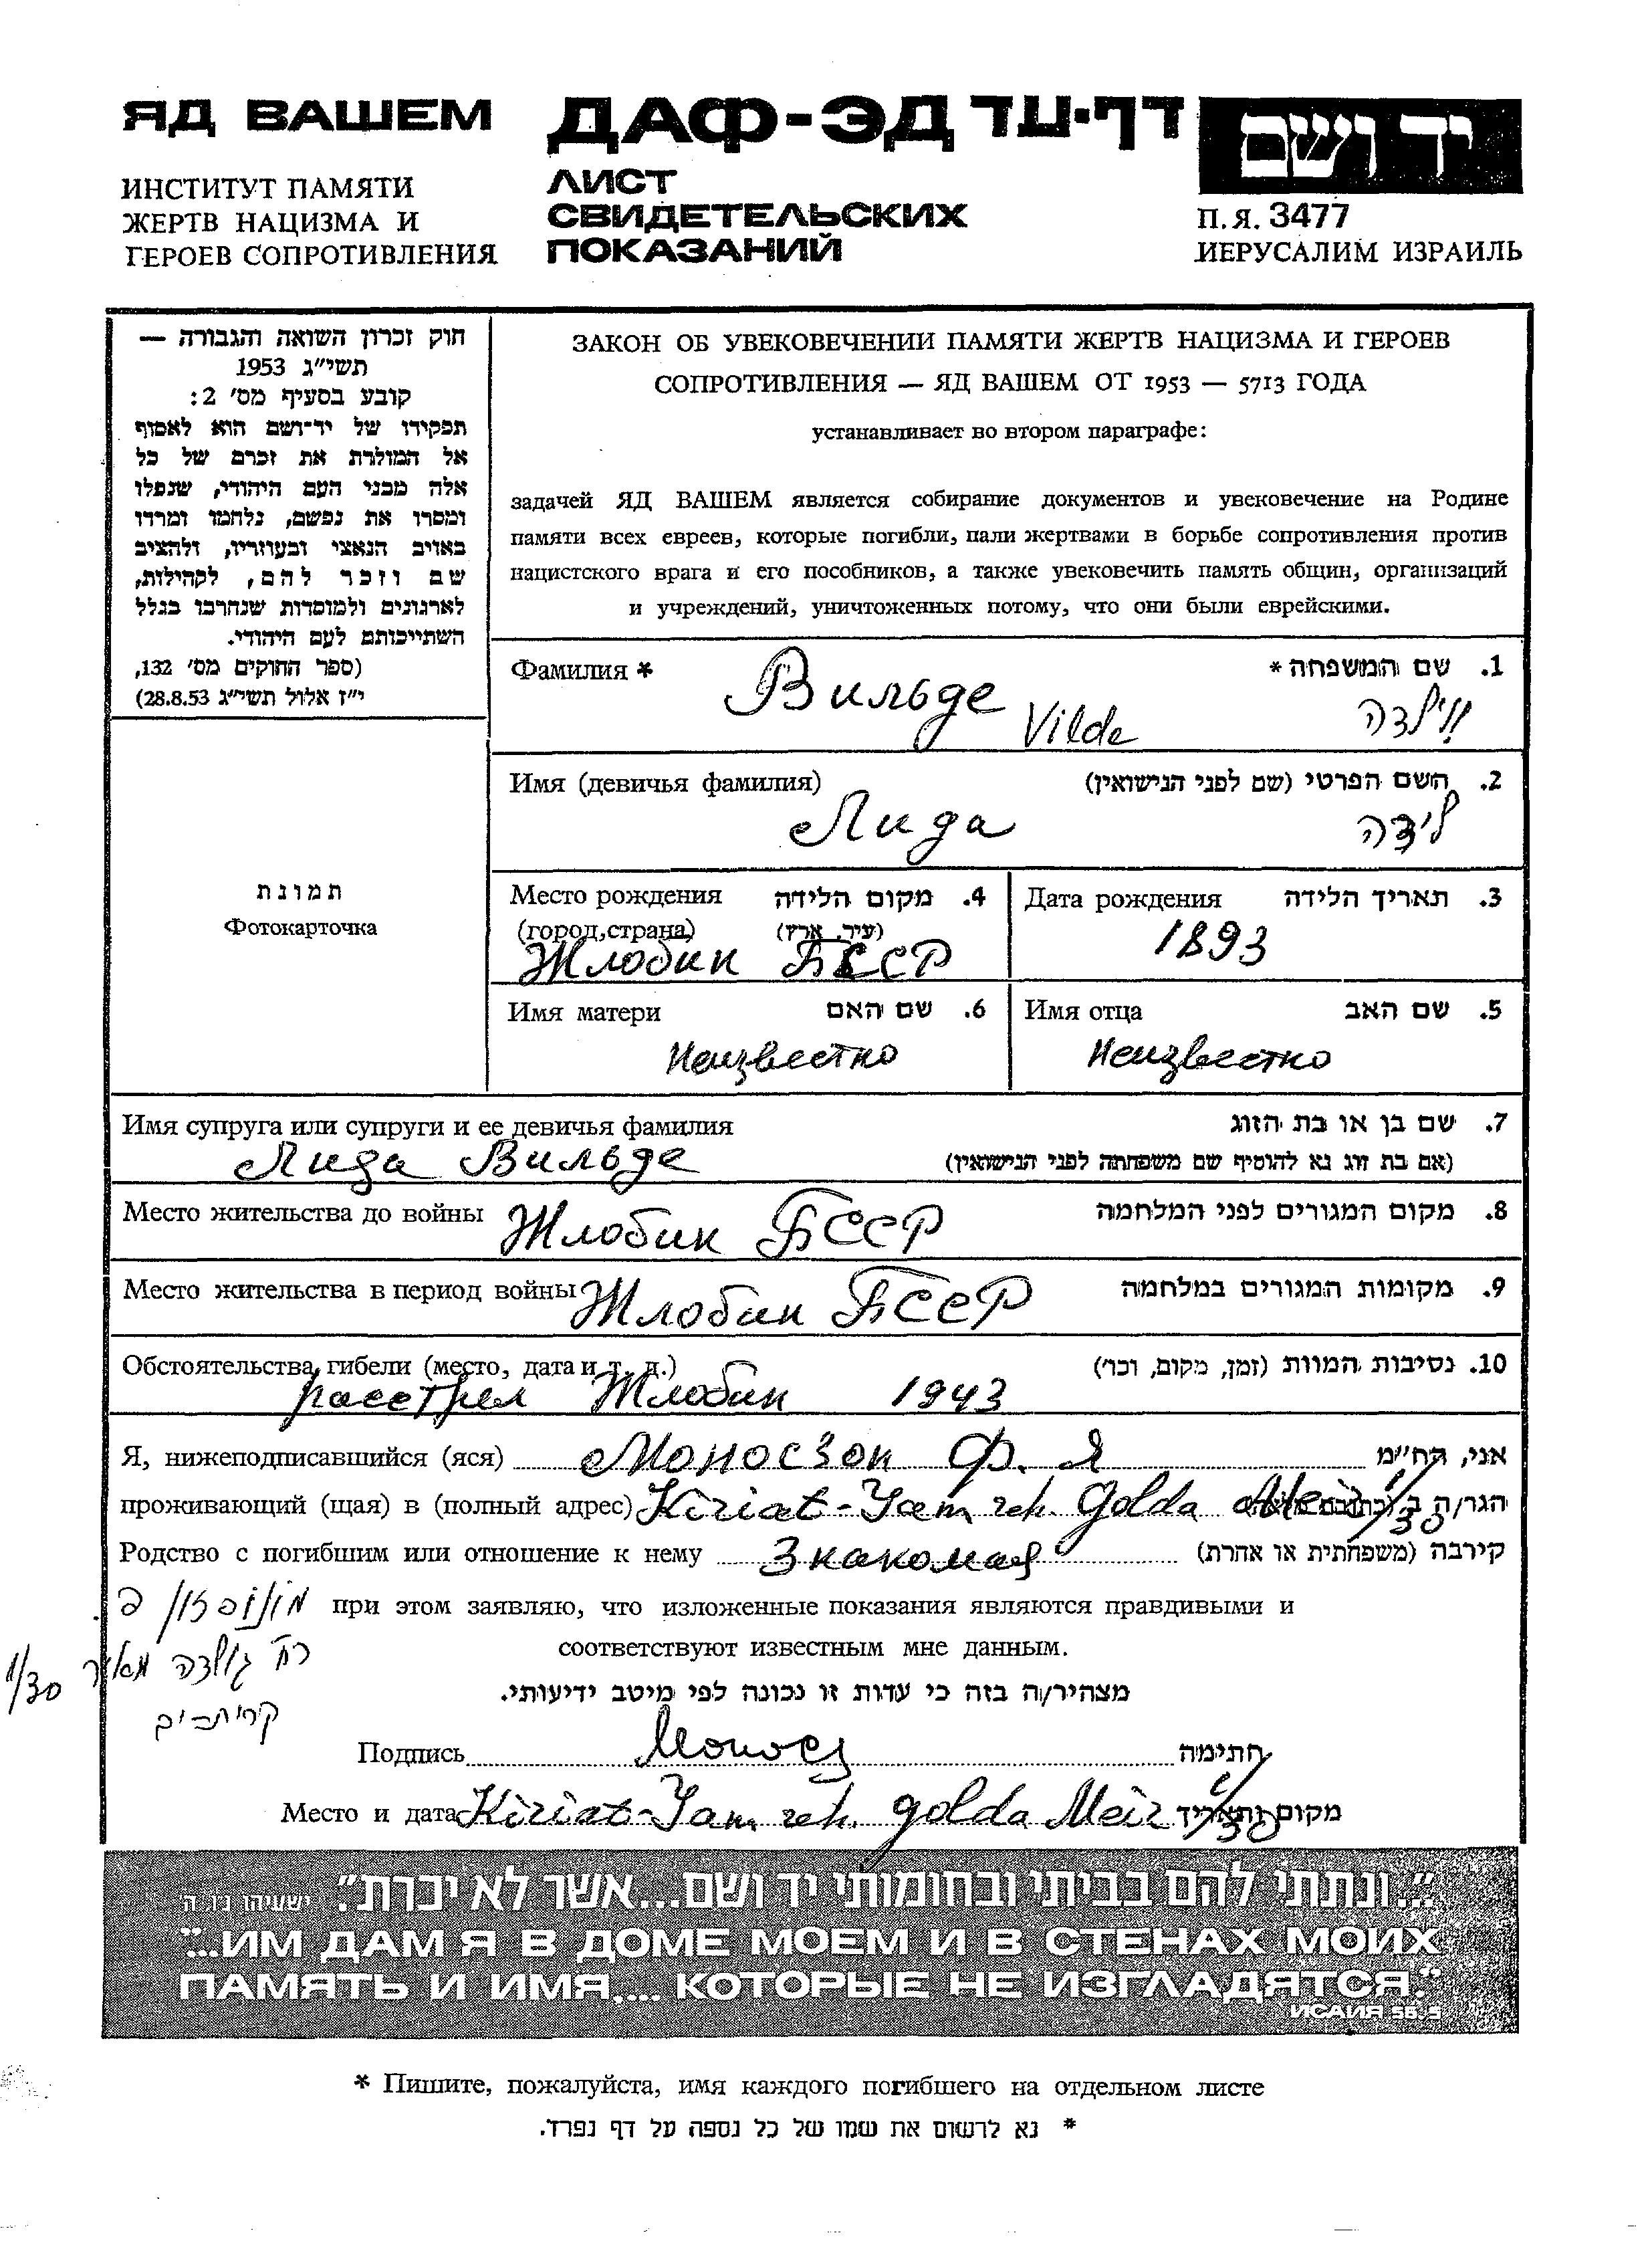 ЯД ВАШЕМ
ИНСТИТУТ ПАМЯТИ
ЖЕРТВ НАЦИЗМА И
ГЕРОЕВ СОПРОТИВЛЕНИЯ
ДАФ-ЭД דף-עד
ЛИСТ
СВИДЕТЕЛЬСКИХ
ПОКАЗАНИЙ
יד ושם
П.Я. 3477
ИЕРУСАЛИМ ИЗРАИЛЬ
חוק זכרון השואה והגבורה —
תשי"ג 1953
קובע בסעיף מס' 2:
תפקידו של יד-ושם הוא לאסוף
אל המולדת את זכרם של כל
אלה מבני העם היהודי, שנפלו
ומסרו את נפשם, נלחמו ומרדו
באויב הנאצי ובעוזריו, ולהציב
שם וזכר להם, לקהילות,
לארגונים ולמוסדות שנחרבו בגלל
השתייכותם לעם היהודי.
(ספר החוקים מס' 132,
י"ז אלול תשי"ג 28.8.53)
ЗАКОН ОБ УВЕКОВЕЧЕНИИ ПАМЯТИ ЖЕРТВ НАЦИЗМА И ГЕРОЕВ
СОПРОТИВЛЕНИЯ — ЯД ВАШЕМ ОТ 1953 — 5713 ГОДА
устанавливает во втором параграфе:
задачей ЯД ВАШЕМ является собирание документов и увековечение на Родине
памяти всех евреев, которые погибли, пали жертвами в борьбе сопротивления против
нацистского врага и его пособников, а также увековечить память общин, организаций
и учреждений, уничтоженных потому, что они были еврейскими.
Фамилия * 1. שם המשפחה *
Вильде Vilde ווילדה
Имя (девичья фамилия) 2. השם הפרטי (שם לפני הנישואין)
Лида לידה
Место рождения 4. מקום הלידה
(город, страна) (עיר, ארץ)
Жлобин БССР
Дата рождения 3. תאריך הלידה
1893
Имя матери 6. שם האם
Неизвестно
Имя отца 5. שם האב
Неизвестно
תמונת
Фотокарточка
Имя супруга или супруги и ее девичья фамилия 7. שם בן או בת הזוג
Лида Вильде (אם בת זוג נא להוסיף שם משפחתה לפני הנישואין)
Место жительства до войны Жлобин БССР 8. מקום המגורים לפני המלחמה
Место жительства в период войны Жлобин БССР 9. מקומות המגורים במלחמה
Обстоятельства гибели (место, дата и т. д.) 10. נסיבות המוות (זמן, מקום, וכו')
расстрел Жлобин 1943
Я, нижеподписавшийся (яся) Моносзон Ф. Я אני, הח"מ
проживающий (щая) в (полный адрес) Kiriat-Yam reh. Golda Meir 1/30 הגר/ה ב
Родство с погибшим или отношение к нему Знакомая קירבה (משפחתית או אחרת)
מונוסזון פ. при этом заявляю, что изложенные показания являются правдивыми и
соответствуют известным мне данным.
רח' גולדה מאיר 1/30
קרית-ים
מצהיר/ה בזה כי עדות זו נכונה לפי מיטב ידיעותי.
Подпись Монос חתימה
Место и дата Kiriat-Yam reh. Golda Meir 1/30 מקום ותאריך
"...ונתתי להם בביתי ובחומותי יד ושם...אשר לא יכרת". ישעיהו נ"ו, ה'
"...ИМ ДАМ Я В ДОМЕ МОЕМ И В СТЕНАХ МОИХ
ПАМЯТЬ И ИМЯ,... КОТОРЫЕ НЕ ИЗГЛАДЯТСЯ."
ИСАИЯ 56.5
* Пишите, пожалуйста, имя каждого погибшего на отдельном листе
* נא לרשום את שמו של כל נספה על דף נפרד.